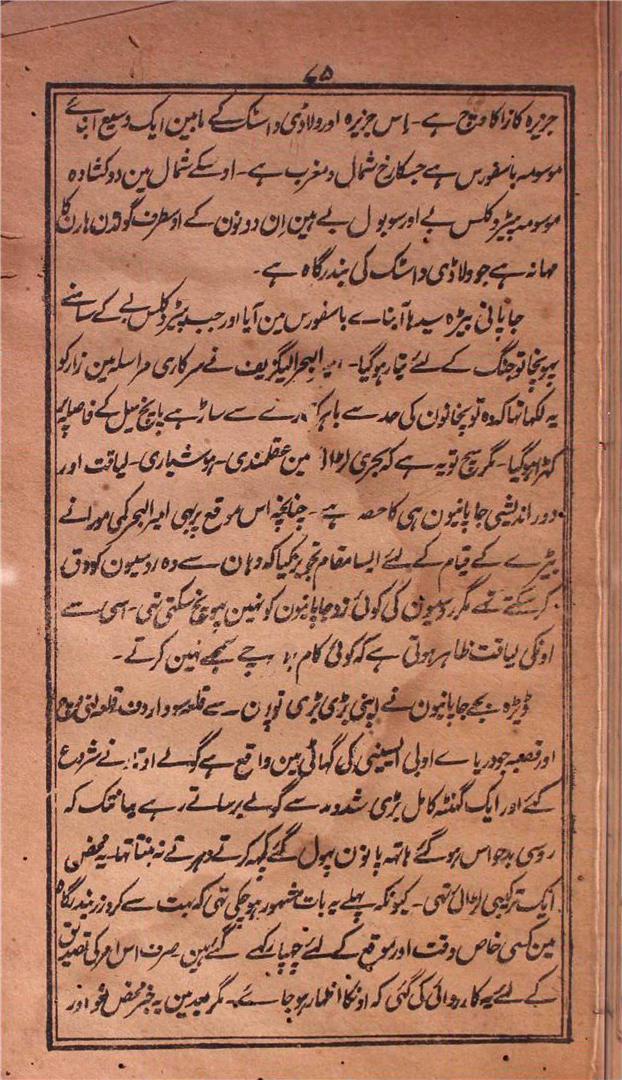 ۷۵
جزیرہ کازاکاوچ ہے۔ اس جزیرہ اور ولاڈی واسٹک کے مابین ایک وسیع آبنائے
موسومہ باسفورس ہے جسکا رخ شمال و مغرب ہے۔ اوسکے شمال مین دو کشادہ
موسومہ پیٹروکلس بے اور سوبول بے ہین ان دونون کے اوسطرف گولڈن ہارن کا
مہانہ ہے جو ولاڈی واسٹک کی بندرگاہ ہے۔
جاپانی بیڑہ سیدہا آبناے باسفورس مین آیا اور جب پیٹروکلس بے کے سامنے
پہونچا تو جنگ کے لئے تیار ہوگیا۔ امیر البحر الیگزیف نے سرکاری مراسلہ مین زار کو
یہ لکھا تہا کہ وہ توپخانون کی حد سے باہر کنارے سے ساڑہے پانچ میل کے فاصلہ پر
کہڑا ہوگیا۔ مگر سچ تو یہ ہے کہ بحری لڑائی مین عقلمندی۔ ہوشیاری۔ لیاقت اور
دور اندیشی جاپانیون ہی کا حصہ ہے۔ چنانچہ اس موقع پر بہی امیر البحر کمی مورا نے
بیڑے کے قیام کے لئے ایسا مقام تجویز کیا کہ وہان سے وہ روسیون کو دق
کرسکتے تہے مگر روسیون کی کوئی زد جاپانیون کو نہین پہونچ سکتی تہی۔ اسی سے
اونکی لیاقت ظاہر ہوتی ہے کہ کوئی کام بے سمجہے نہین کرتے۔
ڈیڑہ بجے جاپانیون نے اپنی بڑی بڑی توپون سے قلعہ سوواروف قلعہ لنی وچ
اور قصبہ جو دریاے اولی السینی کی گہاٹی مین واقع ہے گولے اوتارنے شروع
کئے اور ایک گہنٹہ کامل بڑی شدومد سے گولے برساتے رہے یہانتک کہ
روسی بدحواس ہوگئے ہاتہ پانون پہول گئے کچہہ کرتے دہرتے نہ بنتا تہا۔ یہ محض
ایک ترکیبی لڑائی تہی۔ کیونکہ پہلے یہ بات مشہور ہوچکی تہی کہ بہت سے کروزر بندرگاہ
مین کسی خاص وقت اور موقع کے لئے چہپا رکہے گئے ہین صرف اس امر کی تصدیق
کے لئے یہ کارروائی کی گئی کہ اونکا اظہار ہوجائے۔ مگر بعد مین یہ خبر محض لغو اور